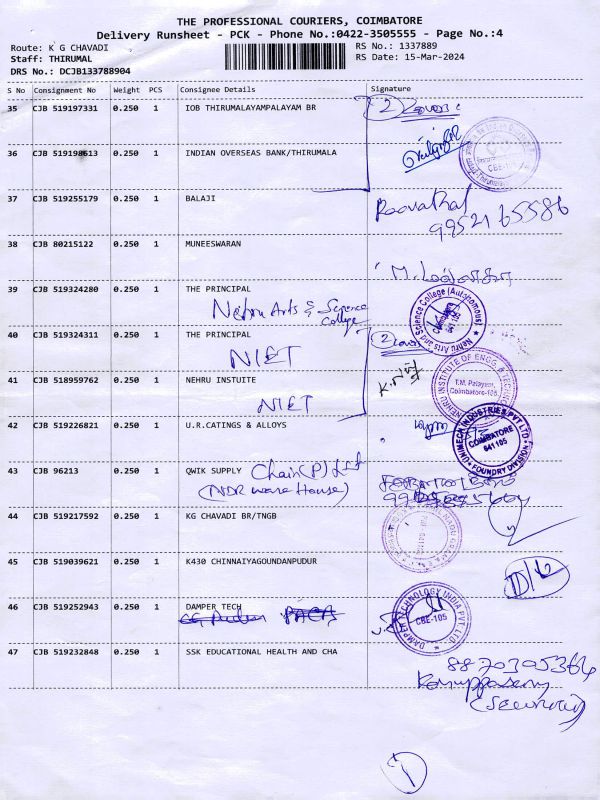 THE PROFESSIONAL COURIERS, COIMBATORE
Delivery Runsheet - PCK - Phone No.:0422-3505555 - Page No.:4
Route: K G CHAVADI
Staff: THIRUMAL
DRS No.: DCJB133788904
RS No.: 1337889
RS Date: 15-Mar-2024
S No Consignment No Weight PCS Consignee Details Signature
35 CJB 519197331 0.250 1 IOB THIRUMALAYAMPALAYAM BR
36 CJB 519198613 0.250 1 INDIAN OVERSEAS BANK/THIRUMALA
37 CJB 519255179 0.250 1 BALAJI
38 CJB 80215122 0.250 1 MUNEESWARAN
39 CJB 519324280 0.250 1 THE PRINCIPAL
Nehru Arts & Science College
40 CJB 519324311 0.250 1 THE PRINCIPAL
NIET
41 CJB 518959762 0.250 1 NEHRU INSTUITE
NIET
T.M. Palayam, Coimbatore-105.
42 CJB 519226821 0.250 1 U.R.CATINGS & ALLOYS
UNIMECH INDUSTRIES PVT LTD
COIMBATORE
641 105
FOUNDRY DIVISION
43 CJB 96213 0.250 1 QWIK SUPPLY Chain (P) Ltd
(NDR ware House)
44 CJB 519217592 0.250 1 KG CHAVADI BR/TNGB
45 CJB 519039621 0.250 1 K430 CHINNAIYAGOUNDANPUDUR
46 CJB 519252943 0.250 1 DAMPER TECH
DAMPER TECHNOLOGY INDIA PVT LTD
CBE-105
47 CJB 519232848 0.250 1 SSK EDUCATIONAL HEALTH AND CHA
8870305364
Karuppasamy
(Security)